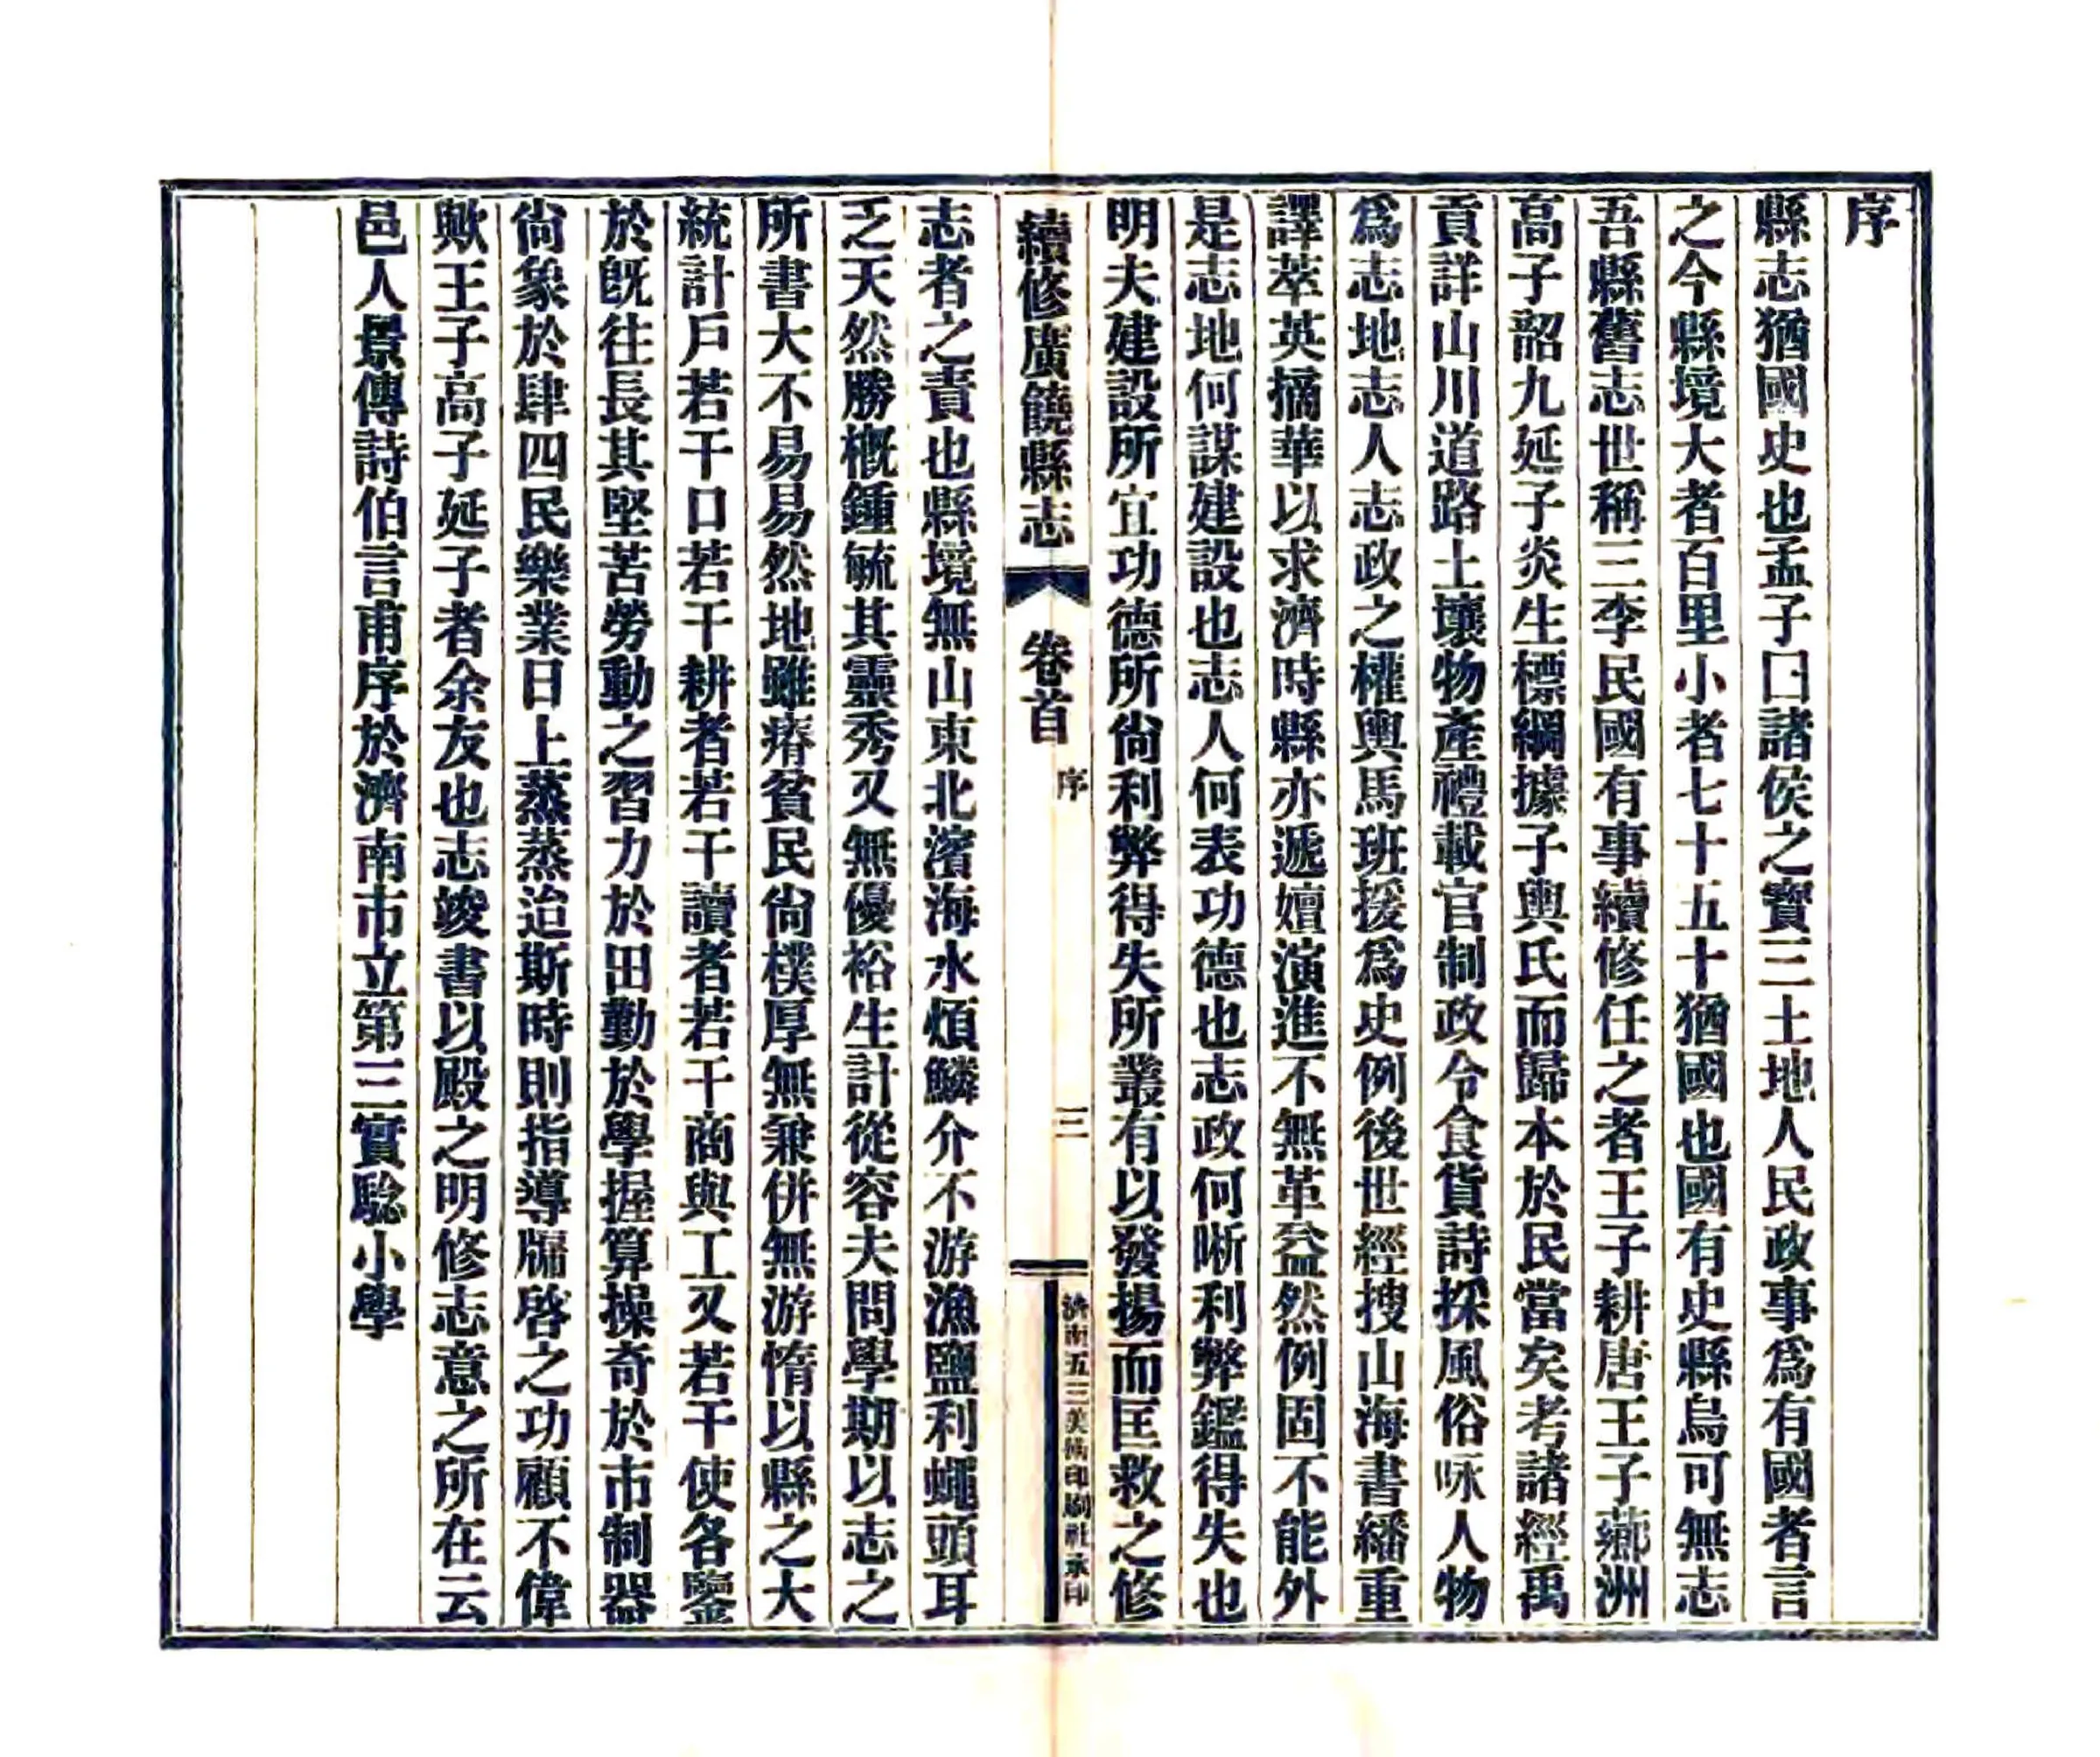 序
縣志猶國史也孟子曰諸侯之寶三土地人民政事爲有國者言
之今縣境大者百里小者七十五十猶國也國有史縣烏可無志
吾縣舊志世稱三李民國有事續修任之者王子耕唐王子薌洲
高子韶九延子炎生標綱據子輿氏而歸本於民當矣考諸經禹
貢詳山川道路土壤物產禮載官制政令食貨詩採風俗咏人物
爲志地志人志政之權輿馬班援爲史例後世經搜山海書繙重
譯萃英摘華以求濟時縣亦遞嬗演進不無革益然例固不能外
是志地何謀建設也志人何表功德也志政何晰利弊鑑得失也
明夫建設所宜功德所尙利弊得失所叢有以發揚而匡救之修
續修廣饒縣志
卷首
序
三
濟南五三美術印刷社承印
志者之責也縣境無山東北濱海水煩鱗介不游漁鹽利蠅頭耳
乏天然勝概鍾毓其靈秀又無優裕生計從容夫問學期以志之
所書大不易易然地雖瘠貧民尙樸厚無兼併無游惰以縣之大
統計戶若干口若干耕者若干讀者若干商與工又若干使各鑒
於旣往長其堅苦勞動之習力於田勤於學握算操奇於市制器
尙象於肆四民樂業日上蒸蒸迨斯時則指導牖啓之功顧不偉
歟王子高子延子者余友也志竣書以殿之明修志意之所在云
邑人景傳詩伯言甫序於濟南市立第三實騐小學